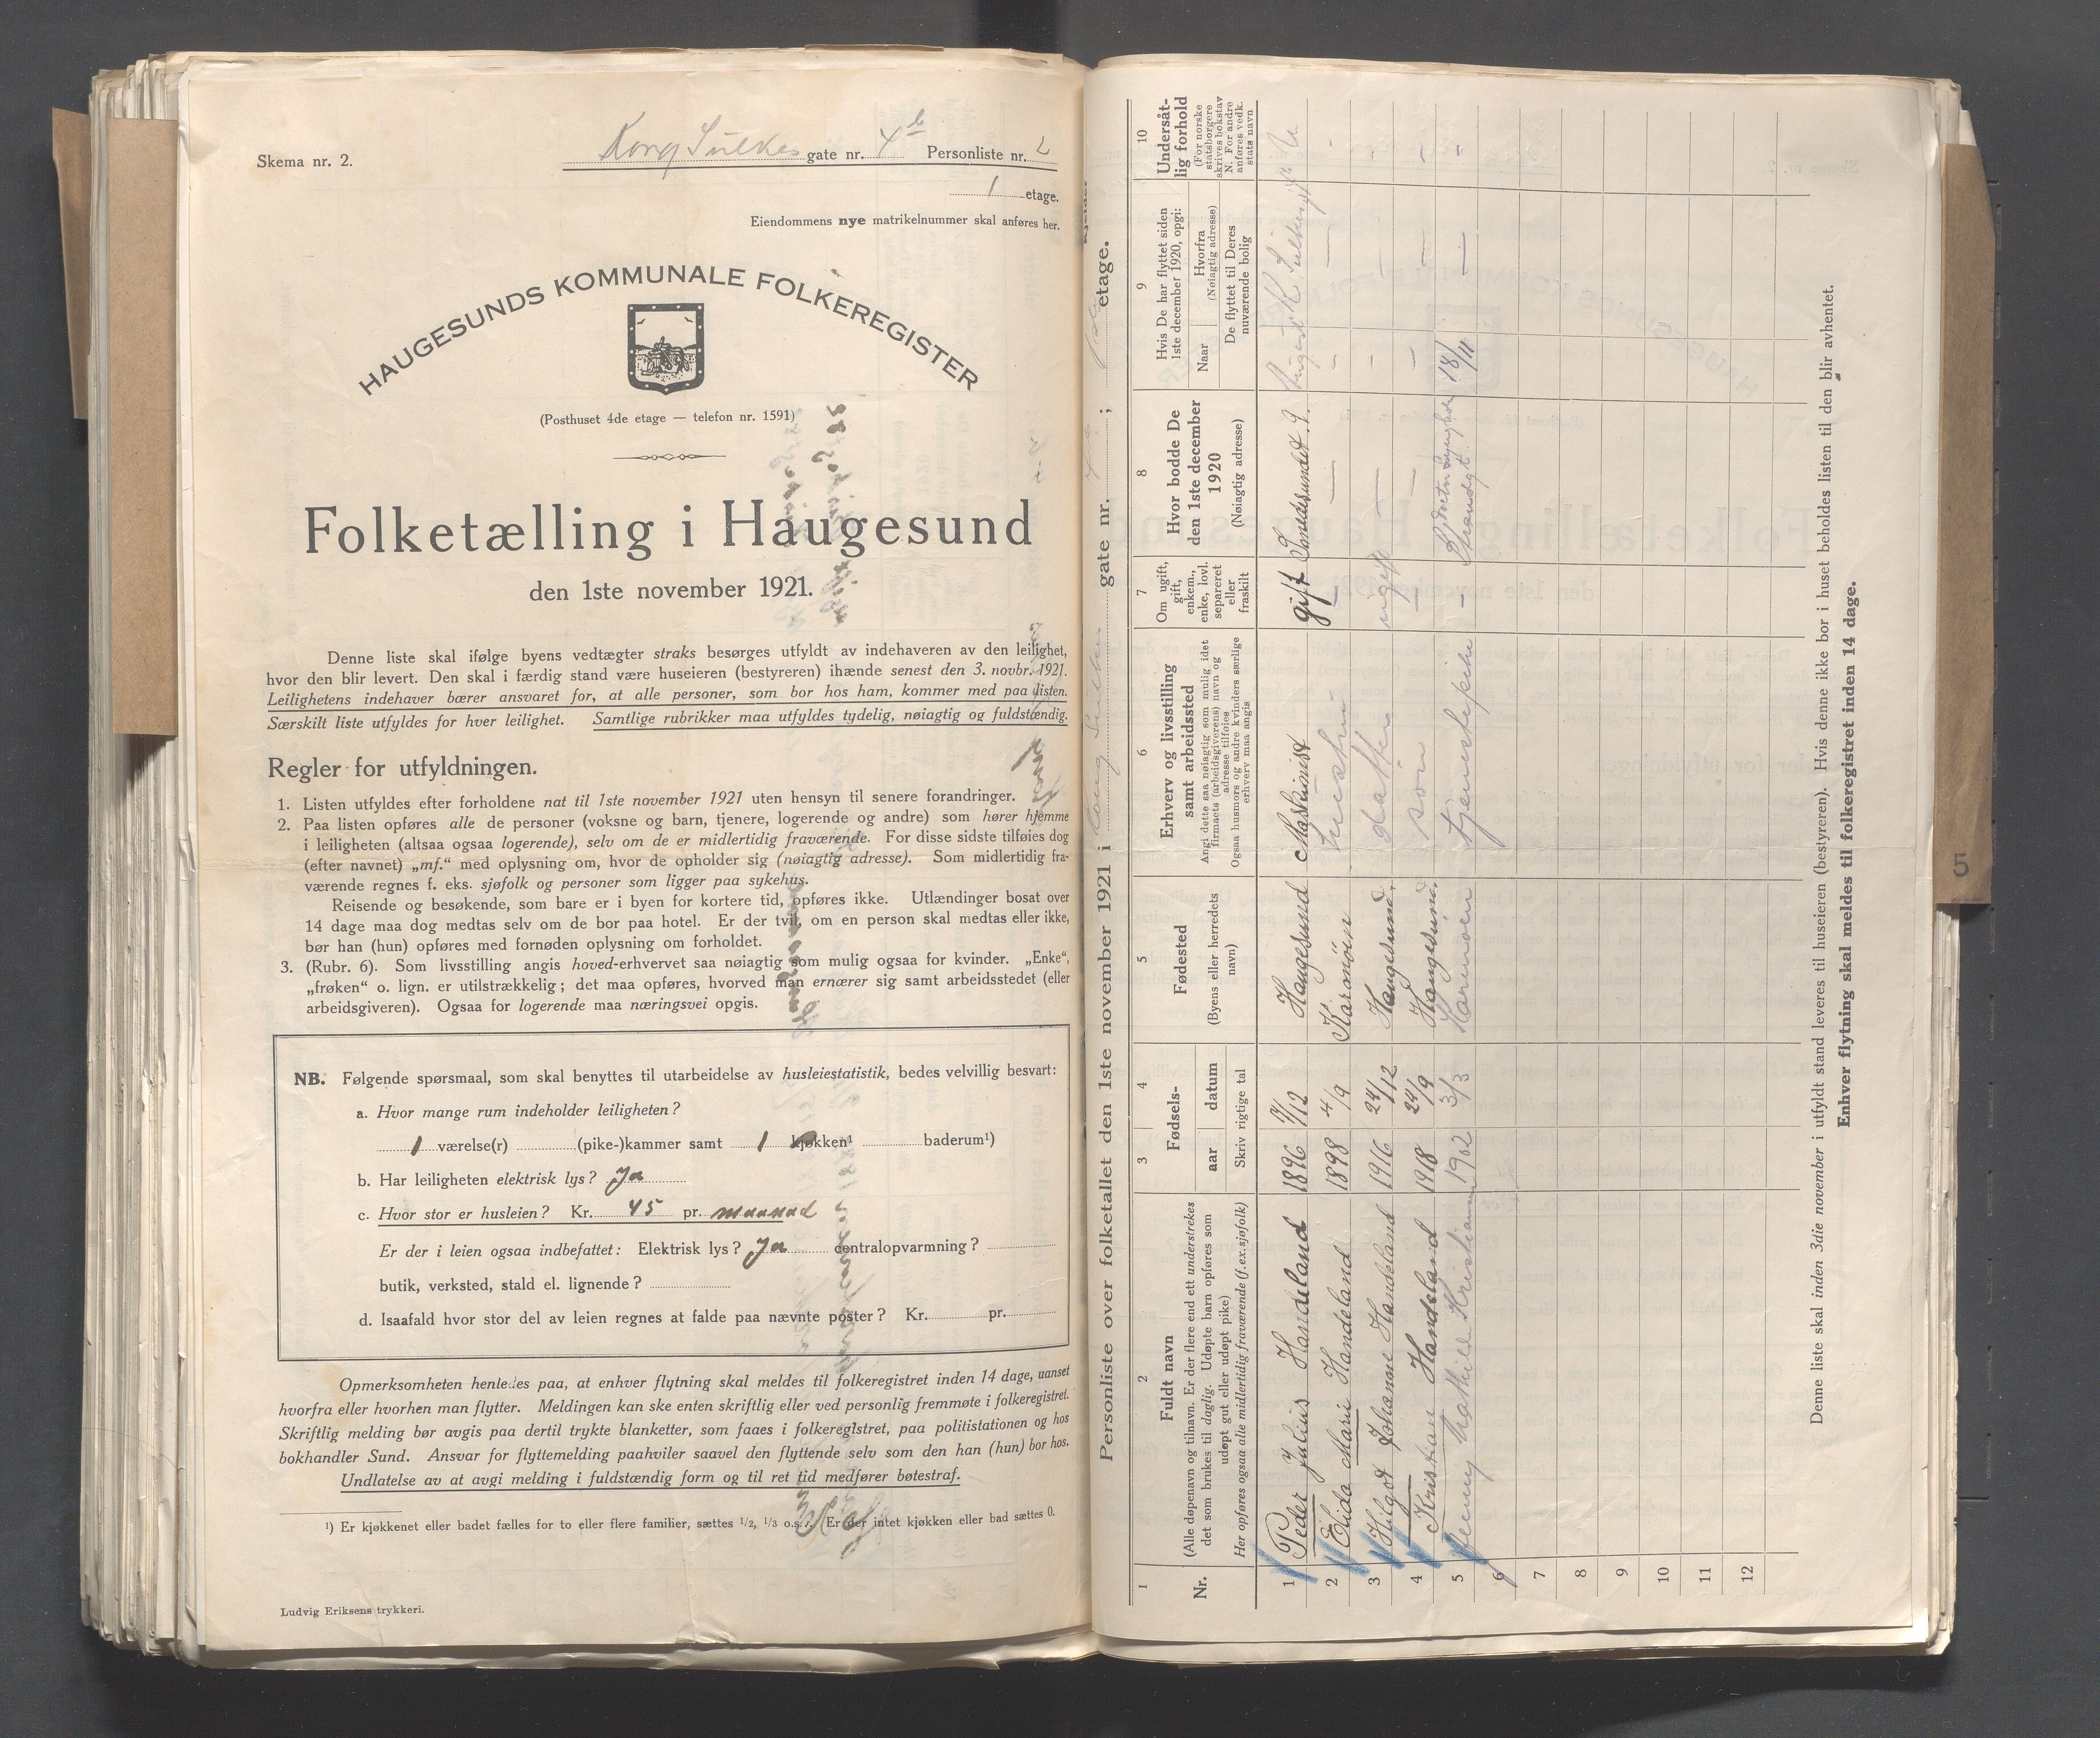 Skema nr. 2.
Kong Sulkes gate nr. 4 b Personliste nr. 2
1 etage.
Eiendommens nye matrikelnummer skal anføres her.
HAUGESUNDS KOMMUNALE FOLKEREGISTER
(Posthuset 4de etage — telefon nr. 1591)
Folketælling i Haugesund
den 1ste november 1921.
Denne liste skal ifølge byens vedtægter straks besørges utfyldt av indehaveren av den leilighet,
hvor den blir levert. Den skal i færdig stand være huseieren (bestyreren) ihænde senest den 3. novbr. 1921.
Leilighetens indehaver bærer ansvaret for, at alle personer, som bor hos ham, kommer med paa listen.
Særskilt liste utfyldes for hver leilighet. Samtlige rubrikker maa utfyldes tydelig, nøiagtig og fuldstændig.
Regler for utfyldningen.
1. Listen utfyldes efter forholdene nat til 1ste november 1921 uten hensyn til senere forandringer.
2. Paa listen opføres alle de personer (voksne og barn, tjenere, logerende og andre) som hører hjemme
i leiligheten (altsaa ogsaa logerende), selv om de er midlertidig fraværende. For disse sidste tilføies dog
(efter navnet) „mf.“ med oplysning om, hvor de opholder sig (nøiagtig adresse). Som midlertidig fra-
værende regnes f. eks. sjøfolk og personer som ligger paa sykehus.
Reisende og besøkende, som bare er i byen for kortere tid, opføres ikke. Utlændinger bosat over
14 dage maa dog medtas selv om de bor paa hotel. Er der tvil, om en person skal medtas eller ikke,
bør han (hun) opføres med fornøden oplysning om forholdet.
3. (Rubr. 6). Som livsstilling angis hoved-erhvervet saa nøiagtig som mulig ogsaa for kvinder. „Enke“,
„frøken“ o. lign. er utilstrækkelig; det maa opføres, hvorved man ernærer sig samt arbeidsstedet (eller
arbeidsgiveren). Ogsaa for logerende maa næringsvei opgis.
NB. Følgende spørsmaal, som skal benyttes til utarbeidelse av husleiestatistik, bedes velvillig besvart:
a. Hvor mange rum indeholder leiligheten?
1 værelse(r) (pike-)kammer samt 1 kjøkken¹ baderum¹)
b. Har leiligheten elektrisk lys? Ja
c. Hvor stor er husleien? Kr. 45 pr. maanad
Er der i leien ogsaa indbefattet: Elektrisk lys? Ja centralopvarmning?
butik, verksted, stald el. lignende?
d. Isaafald hvor stor del av leien regnes at falde paa nævnte poster? Kr. pr.
Opmerksomheten henledes paa, at enhver flytning skal meldes til folkeregistret inden 14 dage, uanset
hvorfra eller hvorhen man flytter. Meldingen kan ske enten skriftlig eller ved personlig fremmøte i folkeregistret.
Skriftlig melding bør avgis paa dertil trykte blanketter, som faaes i folkeregistret, paa politistationen og hos
bokhandler Sund. Ansvar for flyttemelding paahviler saavel den flyttende selv som den han (hun) bor hos.
Undlatelse av at avgi melding i fuldstændig form og til ret tid medfører bøtestraf.
¹) Er kjøkkenet eller badet fælles for to eller flere familier, sættes 1/2, 1/3 o.s.v. (Er der intet kjøkken eller bad sættes 0.
Ludvig Eriksens trykkeri.
Personliste over folketallet den 1ste november 1921 i Kong Sulkes gate nr. ; etage.
1 2 3 4 5 6 7 8 9 10
Nr.
Fuldt navn
(Alle døpenavn og tilnavn. Er der flere end ett understrekes
det som brukes til daglig. Udøpte barn opføres som
udøpt gut eller udøpt pike)
Her opføres ogsaa alle midlertidig fraværende (f.ex. sjøfolk)
Fødsels-
aar datum
Skriv rigtige tal
Fødested
(Byens eller herredets
navn)
Erhverv og livsstilling
samt arbeidssted
Angi dette saa nøiagtig som mulig idet
firmaets (arbeidsgiverens) navn og
adresse tilføies
Ogsaa husmors og andre kvinders særlige
erhverv maa angis
Om ugift,
gift,
enkem.,
enke, lovl.
separeret
eller
fraskilt
Hvor bodde De
den 1ste december
1920
(Nøiagtig adresse)
Hvis De har flyttet siden
1ste december 1920, opgi:
Naar
Hvorfra
(Nøiagtig adresse)
De flyttet til Deres
nuværende bolig
Undersåt-
lig forhold
(For norske
statsborgere
skrives bokstav
N. For andre
anføres vedk.
stats navn
1 Peder Julius Handeland 1896 Haugesund Maskinist gift Smedesundet 9. August K. Sulkesgt N
2 Elida Marie Handeland 1898 4/9 Karmöen hustru — — — — -
3 Hilgot Johanne Handeland 1916 24/12 Haugesund datter ugift — — -
4 Kristian Handeland 1918 24/9 Haugesund. son — — — — -
5 Jenny Mathilde Kristiansen 1902 3/3 Karmöen tjenestepike — Strandgt 18/11 — -
6
7
8
9
10
11
12
Denne liste skal inden 3die november i utfyldt stand leveres til huseieren (bestyreren). Hvis denne ikke bor i huset beholdes listen til den blir avhentet.
Enhver flytning skal meldes til folkeregistret inden 14 dage.
5